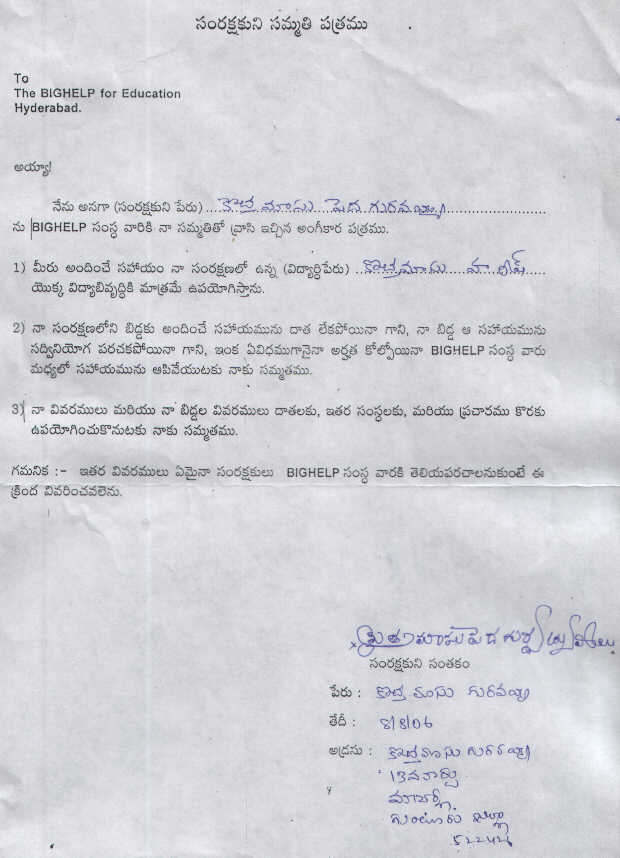 సంరక్షకుని సమ్మతి పత్రము
To
The BIGHELP for Education
Hyderabad.
అయ్యా!
నేను అనగా (సంరక్షకుని పేరు) కొత్త మాసు పెద గురవయ్య
ను BIGHELP సంస్థ వారికి నా సమ్మతితో వ్రాసి ఇచ్చిన అంగీకార పత్రము.
1) మీరు అందించే సహాయం నా సంరక్షణలో ఉన్న (విద్యార్థిపేరు) కొత్తమాసు హరీష్
యొక్క విద్యాబివృద్ధికి మాత్రమే ఉపయోగిస్తాను.
2) నా సంరక్షణలోని బిడ్డకు అందించే సహాయమును దాత లేకపోయినా గాని, నా బిడ్డ ఆ సహాయమును
సద్వినియోగ పరచకపోయినా గాని, ఇంక ఏవిధముగానైనా అర్హత కోల్పోయినా BIGHELP సంస్థ వారు
మధ్యలో సహాయమును ఆపివేయుటకు నాకు సమ్మతము.
3) నా వివరములు మరియు నా బిడ్డల వివరములు దాతలకు, ఇతర సంస్థలకు, మరియు ప్రచారము కొరకు
ఉపయోగించుకొనుటకు నాకు సమ్మతము.
గమనిక :- ఇతర వివరములు ఏమైనా సంరక్షకులు BIGHELP సంస్థ వారకి తెలియపరచాలనుకుంటే ఈ
క్రింద వివరించవలెను.
సంరక్షకుని సంతకం
పేరు : కొత్త మాసు గురవయ్య
తేదీ : 8/8/06
అడ్రసు : కొత్తమాసు గురవయ్య
13వ వార్డు
మాచర్ల
గుంటూరు జిల్లా
522426